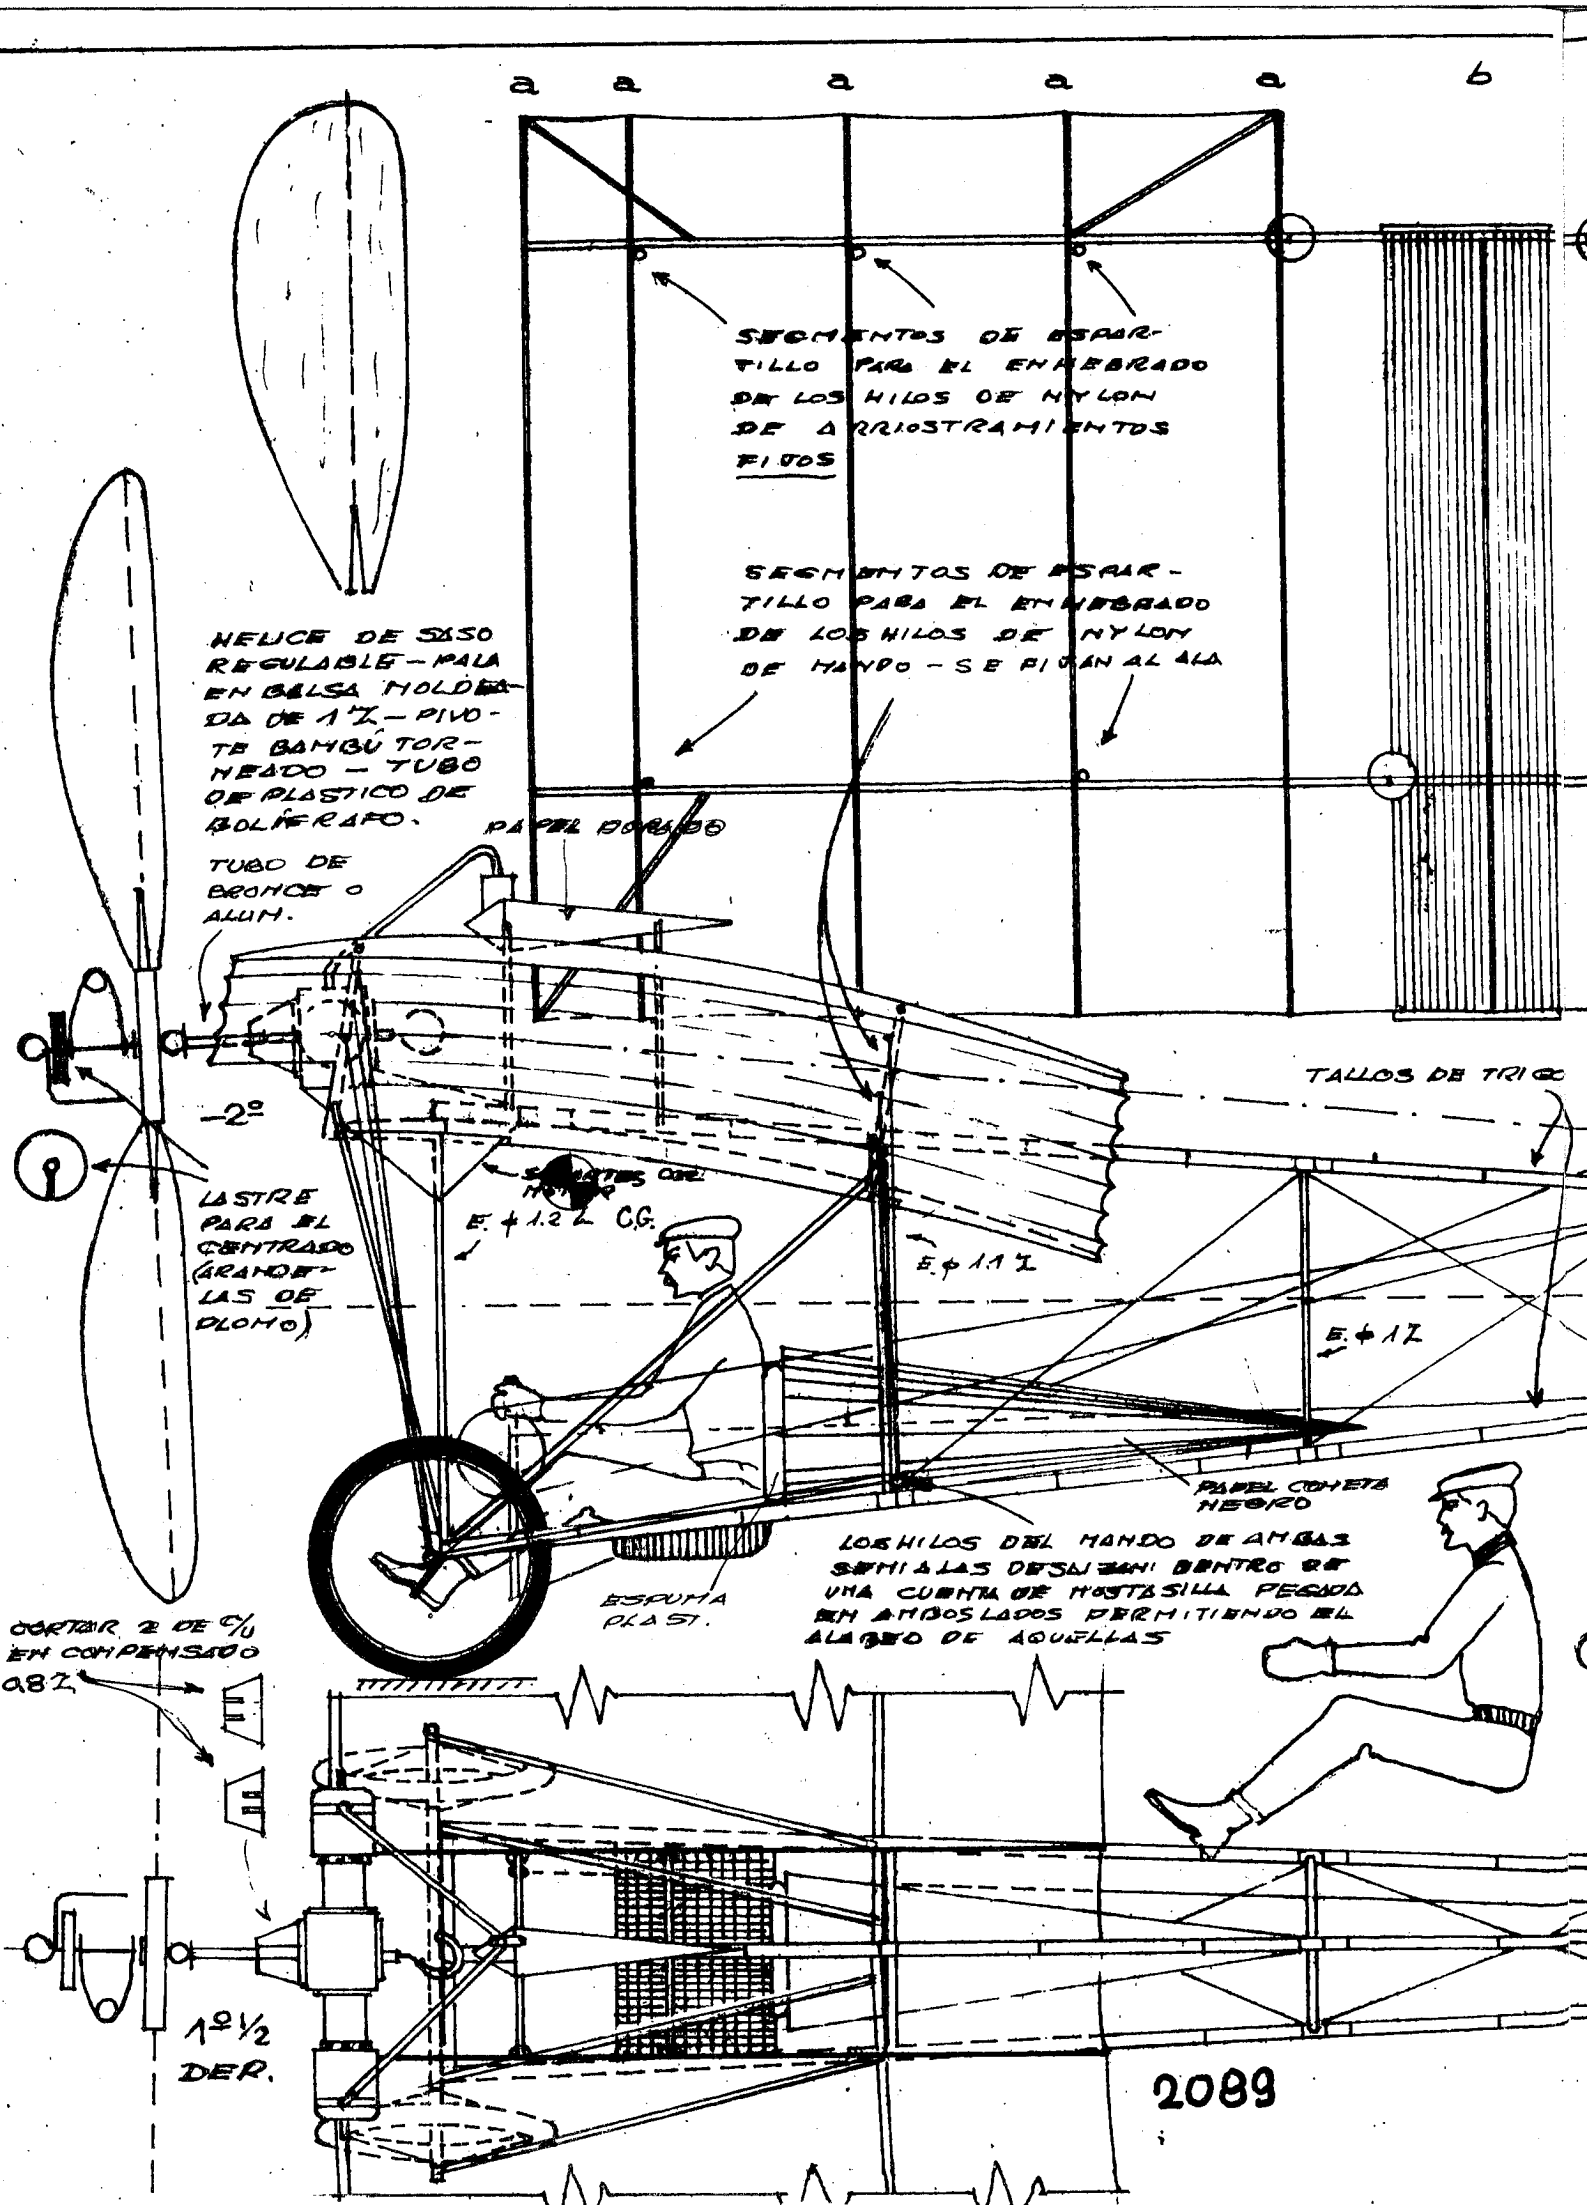 a a a a a b
SEGMENTOS DE ESPAR-
TILLO PARA EL ENHEBRADO
DE LOS HILOS DE NYLON
DE ARRIOSTRAMIENTOS
FIJOS
SEGMENTOS DE ESPAR-
TILLO PARA EL ENHEBRADO
DE LOS HILOS DE NYLON
DE MANDO - SE FIJAN AL ALA
HELICE DE SASO
REGULABLE - PALA
EN BALSA MOLDEA-
DA DE 1 Z - PIVO-
TE BAMBÚ TOR-
NEADO - TUBO
DE PLASTICO DE
BOLÍGRAFO.
PAPEL DORADO
TUBO DE
BRONCE O
ALUM.
TALLOS DE TRIGO
-2º
LASTRE
PARA EL
CENTRADO
(ARANDE-
LAS DE
PLOMO)
SOPORTES DEL
MOTOR
E. φ 1.2 Z C.G.
E. φ 1.1 Z
E. φ 1 Z
PAPEL COMETA
NEGRO
LOS HILOS DEL MANDO DE AMBAS
SEMIALAS DESLIZAN DENTRO DE
UNA CUENTA DE MOSTASILLA PEGADA
EN AMBOS LADOS PERMITIENDO EL
ALABEO DE AQUELLAS
ESPUMA
PLAST.
CORTAR 2 DE C/U
EN COMPENSADO
0.8 Z
1º 1/2
DER.
2089